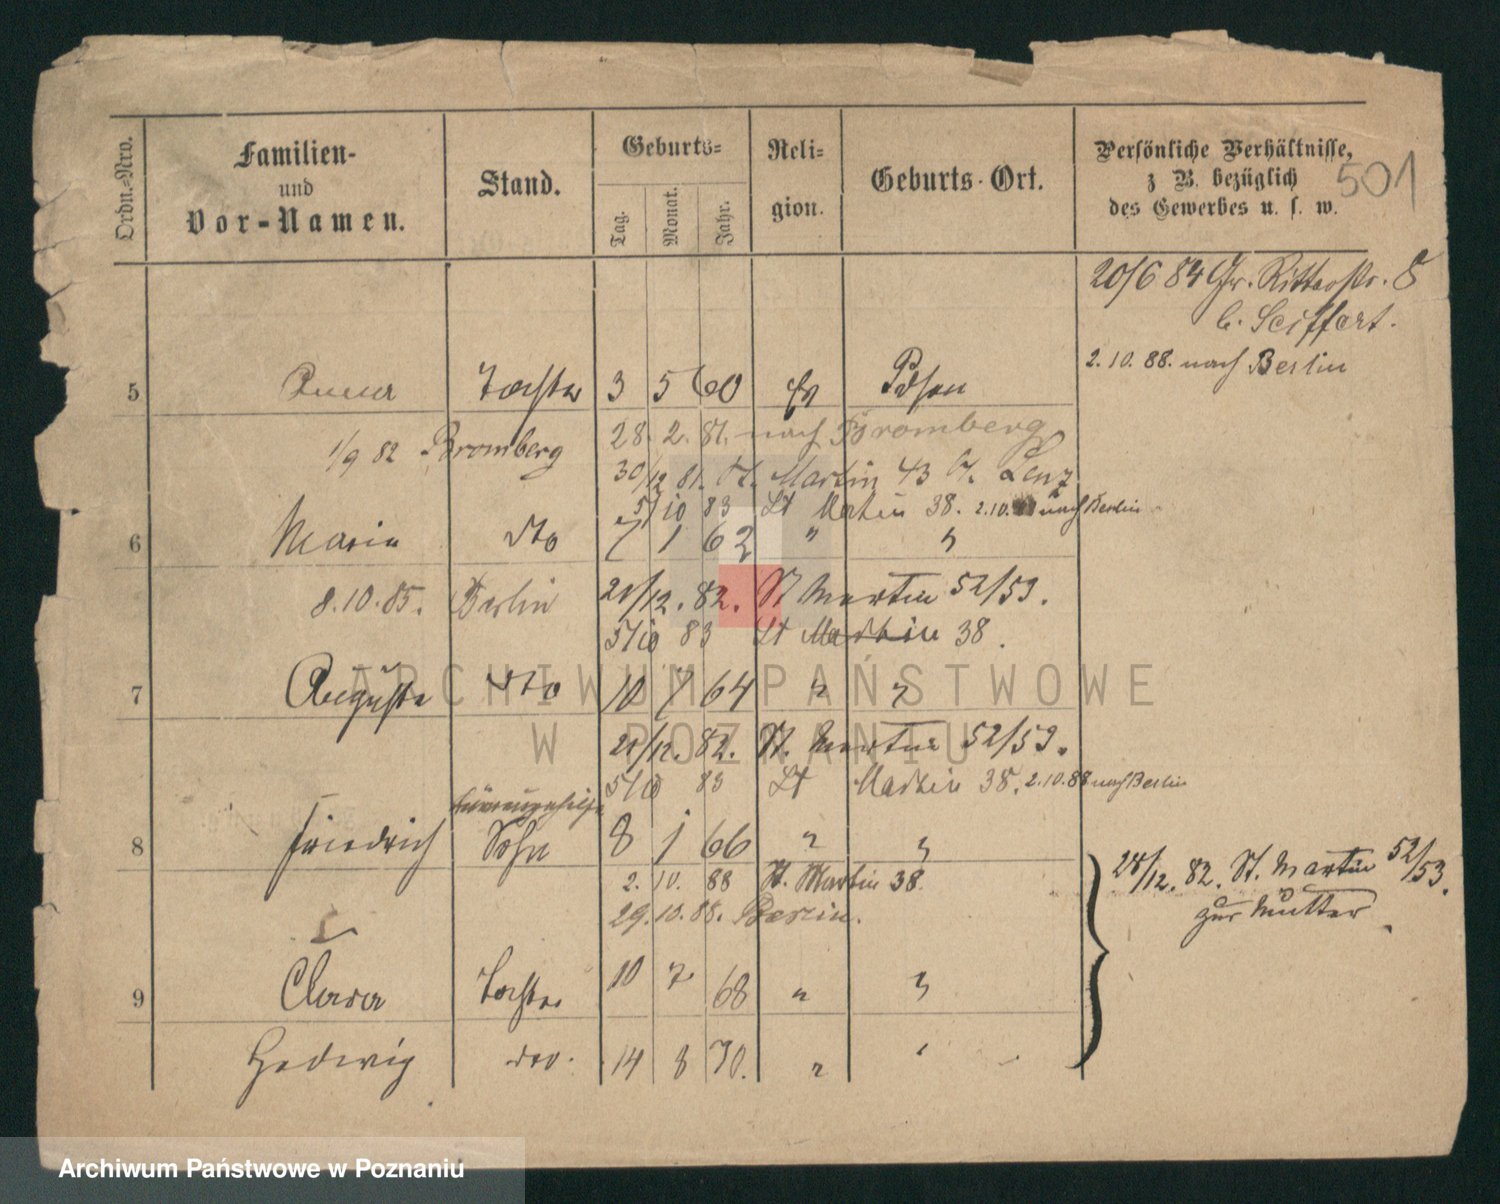 Ordn.-Nro.
Familien-
und
Vor-Namen.
Stand.
Geburts-
Tag.
Monat.
Jahr.
Reli-
gion.
Geburts-Ort.
Persönliche Verhältnisse,
z B. bezüglich
des Gewerbes u. s. w.
501
20/6 84 Gr. Ritterstr. 8
b. Seiffert.
2.10.88. nach Berlin
5 Anna Tochter 3 5 60 ev Posen
1/9 82 Bromberg
28. 2. 81. nach Bromberg
30/12 81. St. Martin 43 b. Lenz
5/10 83 St Martin 38. 2.10. nach Berlin
6 Maria dto 7 1 62 " "
8.10.85. Berlin
28/12. 82. St Martin 52/53.
5/10 83 St Martin 38.
7 Auguste dto 10 7 64 " "
28/12. 82. St. Martin 52/53.
5/10 83 St Martin 38. 2.10.88 nach Berlin
8 Friedrich Sohn 8 1 66 " "
2. 10. 88 St. Martin 38.
29.10.88. Berlin.
28/12. 82. St. Martin 52/53.
zur Mutter
9 Clara Tochter 10 7 68 " "
Hedwig dto. 14 8 70. "
ARCHIWUM PAŃSTWOWE
W POZNANIU
Archiwum Państwowe w Poznaniu